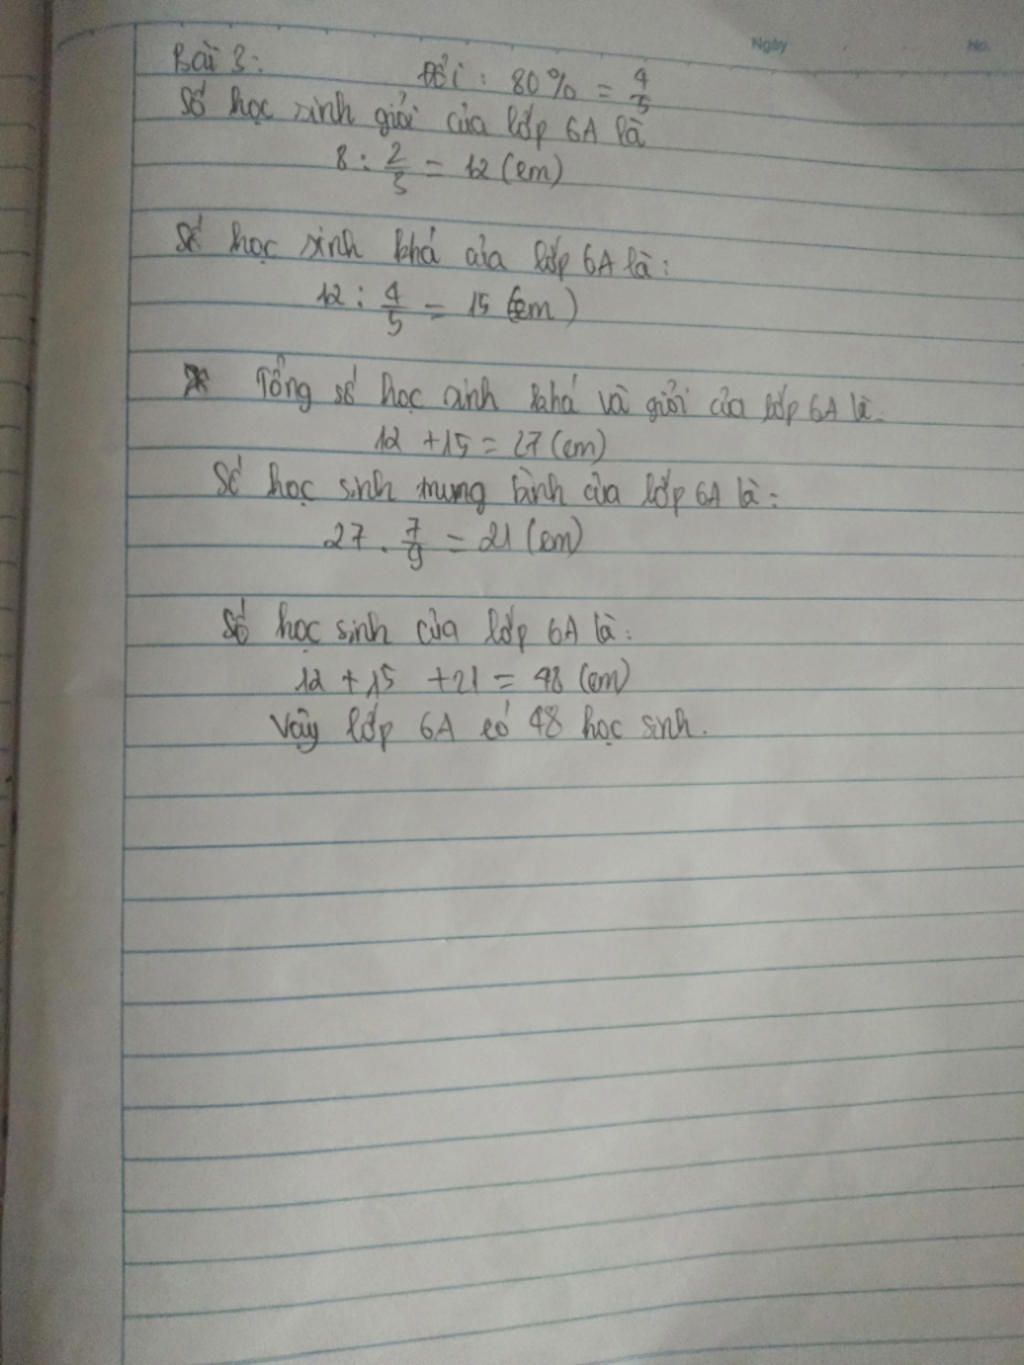 Ngày No.
Bài 3:
Đổi: 80% = 4/5
Số học sinh giỏi của lớp 6A là
8 : 2/3 = 12 (em)
Số học sinh khá của lớp 6A là:
12 : 4/5 = 15 (em)
* Tổng số học sinh khá và giỏi của lớp 6A là.
12 + 15 = 27 (em)
Số học sinh trung bình của lớp 6A là:
27 . 7/9 = 21 (em)
Số học sinh của lớp 6A là:
12 + 15 + 21 = 48 (em)
Vậy lớp 6A có 48 học sinh.